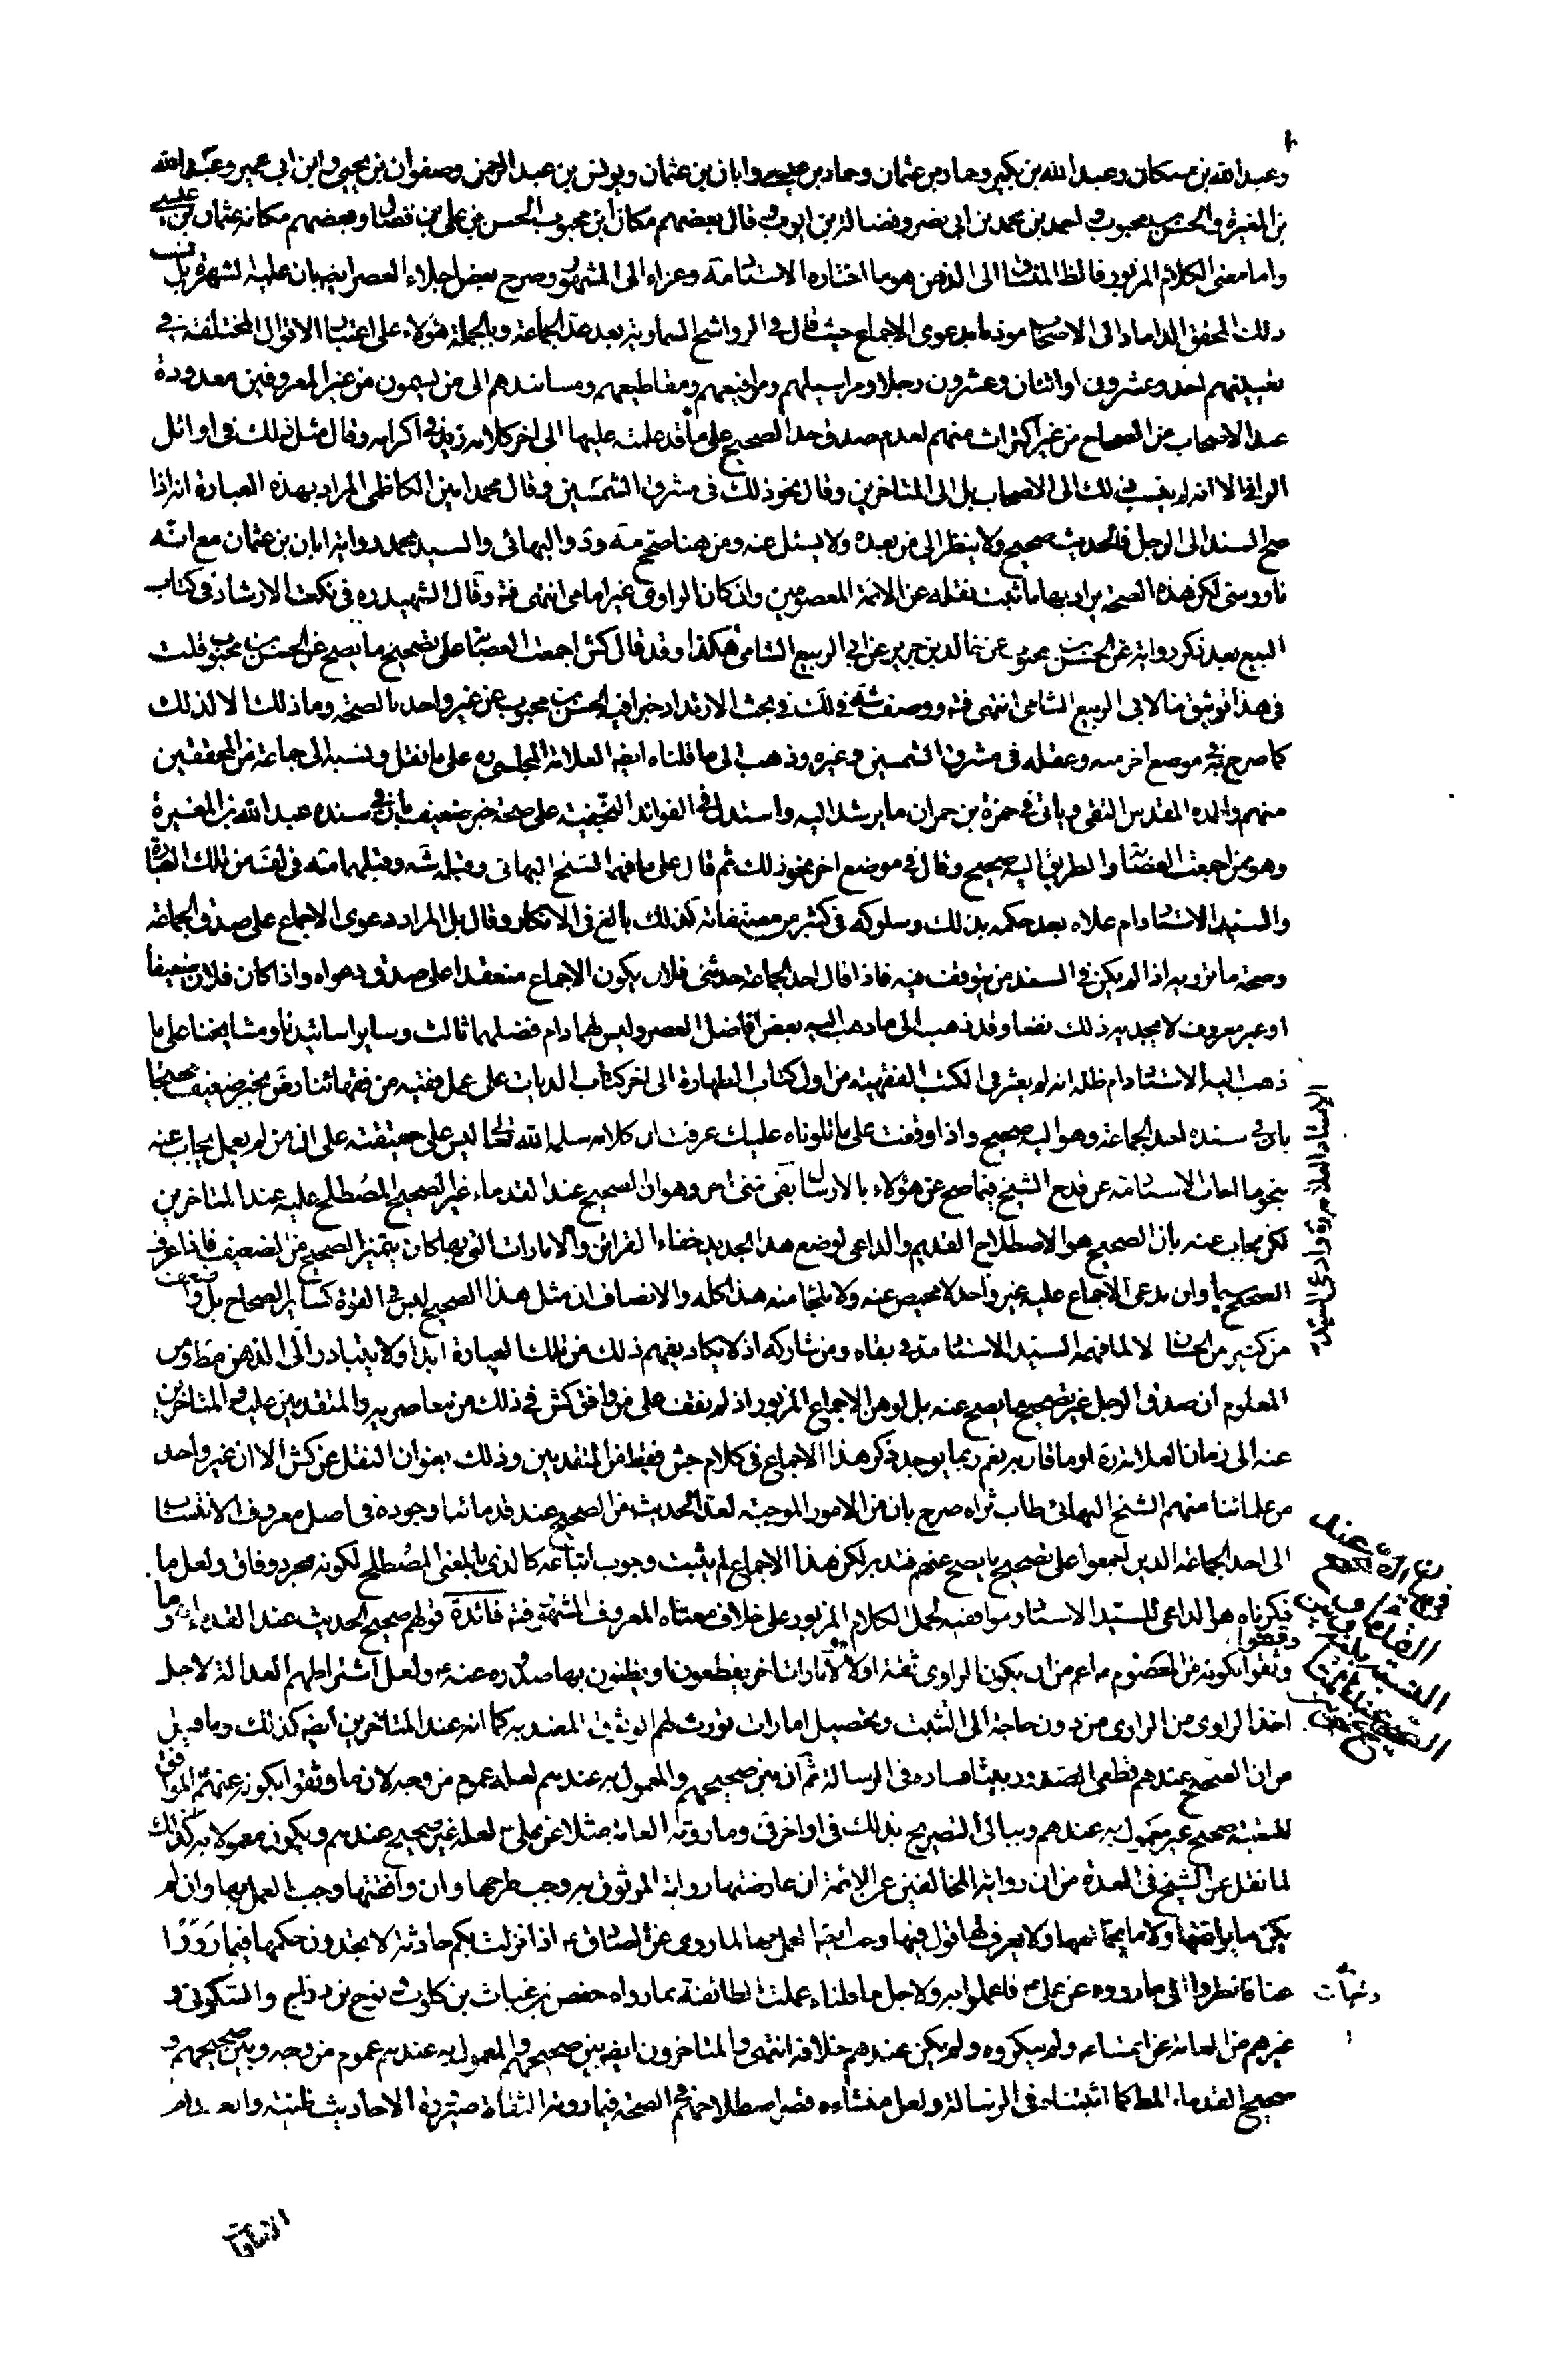 وعبد الله بن مسكان وعبد الله بن بكير وحماد بن عثمان وحماد بن عيسى وابان بن عثمان ويونس بن عبد الرحمن وصفوان بن يحيى وابن ابي عمير وعبد الله
بن المغيرة والحسن بن محبوب واحمد بن محمد بن ابي نصر وفضالة بن ايوب وقال بعضهم مكان ابن محبوب الحسن بن علي بن فضال وبعضهم مكانه عثمان بن عيسى
واما معنى الكلام المزبور فالظ المتبادر الى الذهن هو ما اختاره الاستاد مة وعزاه الى المشهور وصرح بعض اجلاء العصر ايض بان عليه الشهرة بل نسب
ذلك المحقق الداماد الى الاصحاب موذنا بدعوى الاجماع حيث قال في الرواشح السماوية بعد عد الجماعة وبالجملة هؤلاء على اعتبار الاقوال المختلفة في
تعيينهم احد وعشرون او اثنان وعشرون رجلا ومراسيلهم ومرافيعهم ومقاطيعهم ومسانيدهم الى من يسمون من غير المعروفين معدودة
عند الاصحاب من الصحاح من غير اكتراث منهم لعدم صدق حد الصحيح على ما قد علمته عليها الى اخر كلامه زيد في اكرامه وقال مثل ذلك في اوائل
الوافي الا انه لم ينسب ذلك الى الاصحاب بل الى المتاخرين وقال نحو ذلك في مشرق الشمسين وقال محمد امين الكاظمي المراد بهذه العبارة انه اذا
صح السند الى الرجل فالحديث صحيح ولا ينظر الى من بعده ولا يسئل عنه ومن هنا صحح مة ود والبهائي والسيد محمد رواية ابان بن عثمان مع انه
ناووسي لكن هذه الصحة يراد بها ما ثبت نقله عن الائمة المعصومين وان كان الراوي غير امامي انتهى فتد وقال الشهيد ره في نكت الارشاد في كتاب
البيع بعد ذكر رواية عن الحسن بن محبوب عن خالد بن جرير عن ابي الربيع الشامي هكذا وقد قال كش اجمعت العصابة على تصحيح ما يصح عن الحسن بن محبوب قلت
في هذا توثيق ما لابي الربيع الشامي انتهى فتد ووصف في بحث الارتداد خبرا فيه الحسن بن محبوب عن غير واحد بالصحة وما ذلك الا لذلك
كما صرح به في موضع اخر منه وعقله في مشرق الشمسين وغيره وذهب الى ما قلناه ايض العلامة المجلسي ره على ما نقل ونسبه الى جماعة من المحققين
منهم والده المقدس التقي وياتي في حمزة بن حمران ما يرشد اليه واستدل في الفوائد النجفية على صحة خبر ضعيف بان في سنده عبد الله بن المغيرة
وهو ممن اجمعت العصابة والطريق اليه صحيح وقال في موضع اخر نحو ذلك ثم قال على ما فهمه الشيخ البهائي وقبله شه وقبلهما مة في لف من تلك العبارة
والسيد الاستاد دام علاه بعد حكمه بذلك وسلوكه في كثير من مصنفاته كذلك بالغ في الانكار وقال بل المراد دعوى الاجماع على صدق الجماعة
وصحة ما ترويه اذا لم يكن في السند من يتوقف فيه فاذا قال احد الجماعة حدثني فلان يكون الاجماع منعقدا على صدق دعواه واذا كان فلان ضعيفا
او غير معروف لا يجديه ذلك نفعا وقد ذهب الى ما ذهب اليه بعض افاضل العصر وليس لهما دام فضلهما ثالث وساير اساتيدنا ومشايخنا على ما
ذهب اليه الاستاد دام ظله انه لم يعثر في الكتب الفقهية من اول كتاب الطهارة الى اخر كتاب الديات على عمل فقيه من فقهائنا رض بخبر ضعيف محتجا
بان في سنده احد الجماعة وهو اليه صحيح واذا وقفت على ما تلوناه عليك عرفت ان كلامه سلمه الله تعالى ليس على حقيقته على ان من لم يعمل يجاب عنه
بنحو ما اجاب الاستاد مة عن قدح الشيخ فيما صح عن هؤلاء بالارسال بقى شئ اخر وهو ان الصحيح عند القدماء غير الصحيح المصطلح عليه عند المتاخرين
لكن يجاب عنه بان الصحيح هو الاصطلاح القديم والداعي لوضع هذا الجديد خفاء القرائن والامارات التي بها كان يتميز الصحيح من الضعيف فاذا عرف
الصحيح سيما وان يدعي الاجماع عليه غير واحد لا محيص عنه ولا ملجا منه هذا كله والانصاف ان مثل هذا الصحيح ليس في القوة كساير الصحاح بل واضعف
من كثير من الحسان لا لما فهمه السيد الاستاد مد في بقاه ومن شاركه اذ لا يكاد يفهم ذلك من تلك العبارة ابدا ولا يتبادر الى الذهن مط
المعلوم ان صدق الرجل غير تصحيح ما يصح عنه بل لوهن الاجماع المزبور اذ لم نقف على من وافق كش في ذلك من معاصريه والمتقدمين عليه والمتاخرين
عنه الى زمان العلامة ره او ما قاربه نعم ربما يوجد ذكر هذا الاجماع في كلام جش فقط من المتقدمين وذلك بعنوان النقل عن كش الا ان غير واحد
من علمائنا منهم الشيخ البهائي طاب ثراه صرح بان من الامور الموجبة لعد الحديث من الصحيح عند قدمائنا وجوده في اصل معروف الانتساب
الى احد الجماعة الذين اجمعوا على تصحيح ما يصح عنهم فتدبر لكن هذا الاجماع لم يثبت وجوب اتباعه كالذي بالمعنى المصطلح لكونه مجرد وفاق ولعل ما
ذكرناه هو الداعي للسيد الاستاد وموافقيه لحمل الكلام المزبور على خلاف معناه المعروف المشتهر فتد فائدة قولهم صحيح الحديث عند القدماء هو ما
وثقوا بكونه من المعصوم ع اعم من ان يكون الراوي ثقة او لامارات اخر يقطعون او يظنون بها صدوره عنه ع ولعل اشتراطهم العدالة لاجل
اخذ الراوي من الراوي من دون حاجة الى التثبت وتحصيل امارات تورث لهم الوثوق المعتد به كما انه عند المتاخرين ايض كذلك وما قيل
من ان الصحيح عندهم قطعي الصدور بينا فساده في الرسالة ثم ان بين صحيحهم والمعمول به عندهم لعله عموم من وجه لان ما وثقوا بكونه عنهم ع الموافق
للتقية صحيح غير معمول به عندهم وببالي التصريح بذلك في اواخر في وما روته العامة مثلا عن علي ع لعله غير صحيح عندهم ويكون معمولا به كذلك
لما نقل عن الشيخ في العدة من ان رواية المخالفين عن الائمة ان عارضتها رواية الموثوق به وجب طرحها وان وافقتها وجب العمل بها وان لم
يكن ما يوافقها ولا ما يخالفها ولا يعرف لها قول فيها وجب ايض العمل بها لما روي عن الصادق ع اذا نزلت بكم حادثة لا تجدون حكمها فيما رووا
عنا فانظروا الى ما رووه عن علي ع فاعملوا به ولاجل ما قلناه عملت الطائفة بما رواه حفص بن غياث بن كلوب نوح بن دراج والسكوني و
غيرهم من العامة عن ائمتنا ع ولم ينكروه ولم يكن عندهم خلافه انتهى والمتاخرون ايض بين صحيحهم والمعمول به عندهم عموم من وجه وبين صحيحهم و
صحيح القدماء المط كما اثبتناه في الرسالة ولعل منشاءه قصر اصطلاحهم في الصحة فيما روته الثقاة صيرورة الاحاديث ظنية
الاستاد العلامة وادعى السيد
وغياث